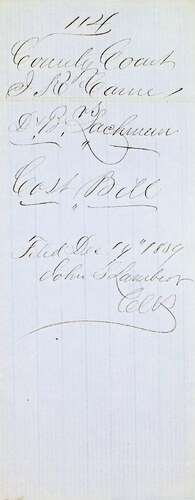 1124
County Court
J. R. Carnes
vs
D. B. Lachman
Cost Bill
Filed Dec 19" 1859
John S Lambert
Clk